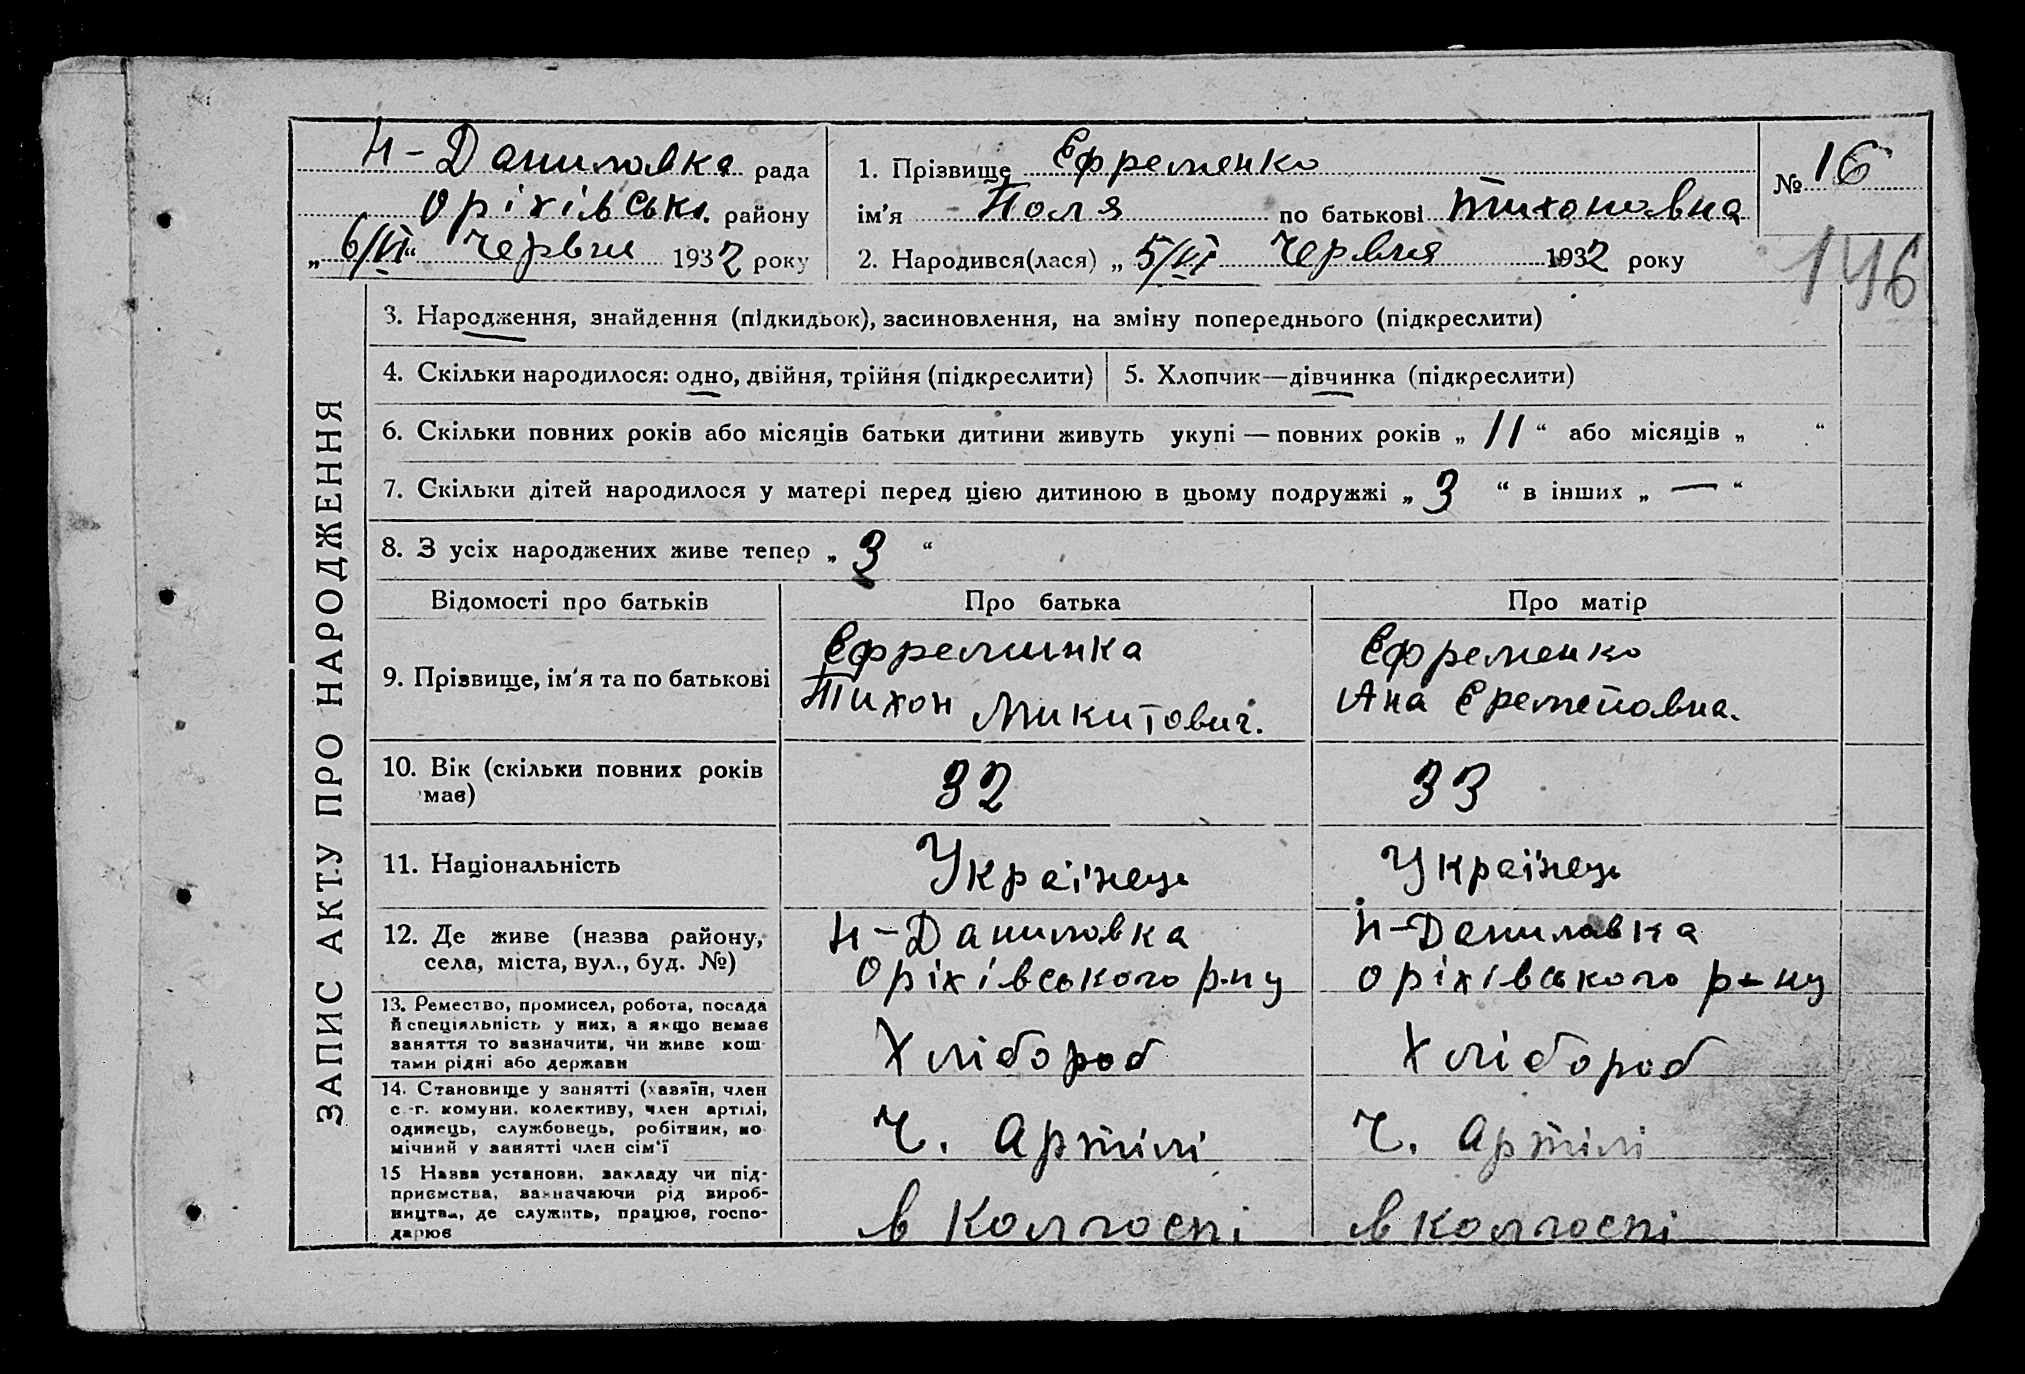 Н-Даниловка рада
Оріхівськ. району
„ 6/VI “ Червня 1932 року
1. Прізвище Єфременко
ім’я Поля по батькові Тихоновна
2. Народився(лася) „ 5/VI Червня 1932 року
№ 16
146
ЗАПИС АКТУ ПРО НАРОДЖЕННЯ
3. Народження, знайдення (підкидьок), засиновлення, на зміну попереднього (підкреслити)
4. Скільки народилося: одно, двійня, трійня (підкреслити)
5. Хлопчик—дівчинка (підкреслити)
6. Скільки повних років або місяців батьки дитини живуть укупі — повних років „ 11 “ або місяців „ “
7. Скільки дітей народилося у матері перед цією дитиною в цьому подружжі „ 3 “ в інших „ — “
8. З усіх народжених живе тепер „ 3 “
Відомості про батьків Про батька Про матір
9. Прізвище, ім’я та по батькові
Єфреминка
Тихон Микитович.
Єфременко
Ана Єремеповна.
10. Вік (скільки повних років
має)
32
33
11. Національність
Українець
Українець
12. Де живе (назва району,
села, міста, вул., буд. №)
Н-Даниловка
Оріхівського р-ну
Н-Даниловка
Оріхівського р-ну
13. Ремество, промисел, робота, посада
й спеціяльність у них, а якщо немає
заняття то зазначити, чи живе кош-
тами рідні або держави
Хлібороб
Хлібороб
14. Становище у занятті (хазяїн, член
с.-г. комуни, колективу, член артілі,
одинець, службовець, робітник, по-
мічний у занятті член сім’ї
Ч. Артілі
Ч. Артілі
15 Назва установи, закладу чи під-
приємства, зазначаючи рід вироб-
ництва, де служить, працює, госпо-
дарює
в колгоспі
в колгоспі